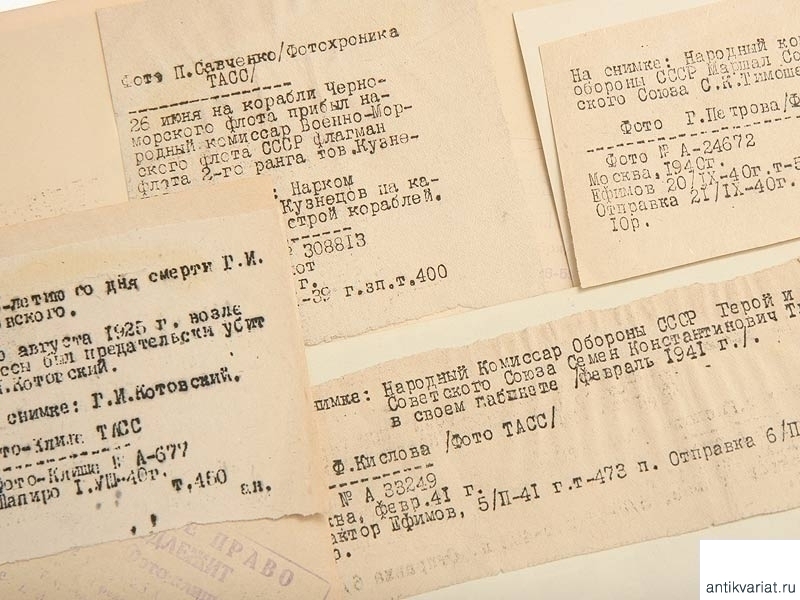 Фото П.Савченко/Фотохроника
ТАСС/
26 июня на корабли Черно-
морского флота прибыл на-
родный комиссар Военно-Мор-
ского флота СССР флагман
флота 2-го ранга тов.Кузне-
: Нарком
Кузнецов на ка-
строй кораблей.
308813
от
г.
-39 г.зп.т.400
На снимке: Народный ко
обороны СССР Маршал Со
ского Союза С.К.Тимоше
Фото Г.Петрова/Ф
Фото № А-24672
Москва,1940г.
Ефимов 20/IX-40г.т-5
Отправка 21/IX-40г.
10р.
-летию со дня смерти Г.И.
овского.
августа 1925 г. возле
ссы был предательски убит
.Котовский.
снимке: Г.И.Котовский.
то-Клише ТАСС
ото-Клише № А-677
Шапиро 1.УШ-40г.
т.450 ан.
нимке: Народный Комиссар Обороны СССР Герой и
Советского Союза Семен Константинович Т
в своем кабинете /февраль 1941 г./.
Ф.Кислова /Фото ТАСС/
№ А 33249
ква, февр.41 г.
актор Ефимов, 5/П-41 г.т-473 п. Отправка 6/П
р.
Е ПРАВО
ДЛЕЖИТ
antikvariat.ru